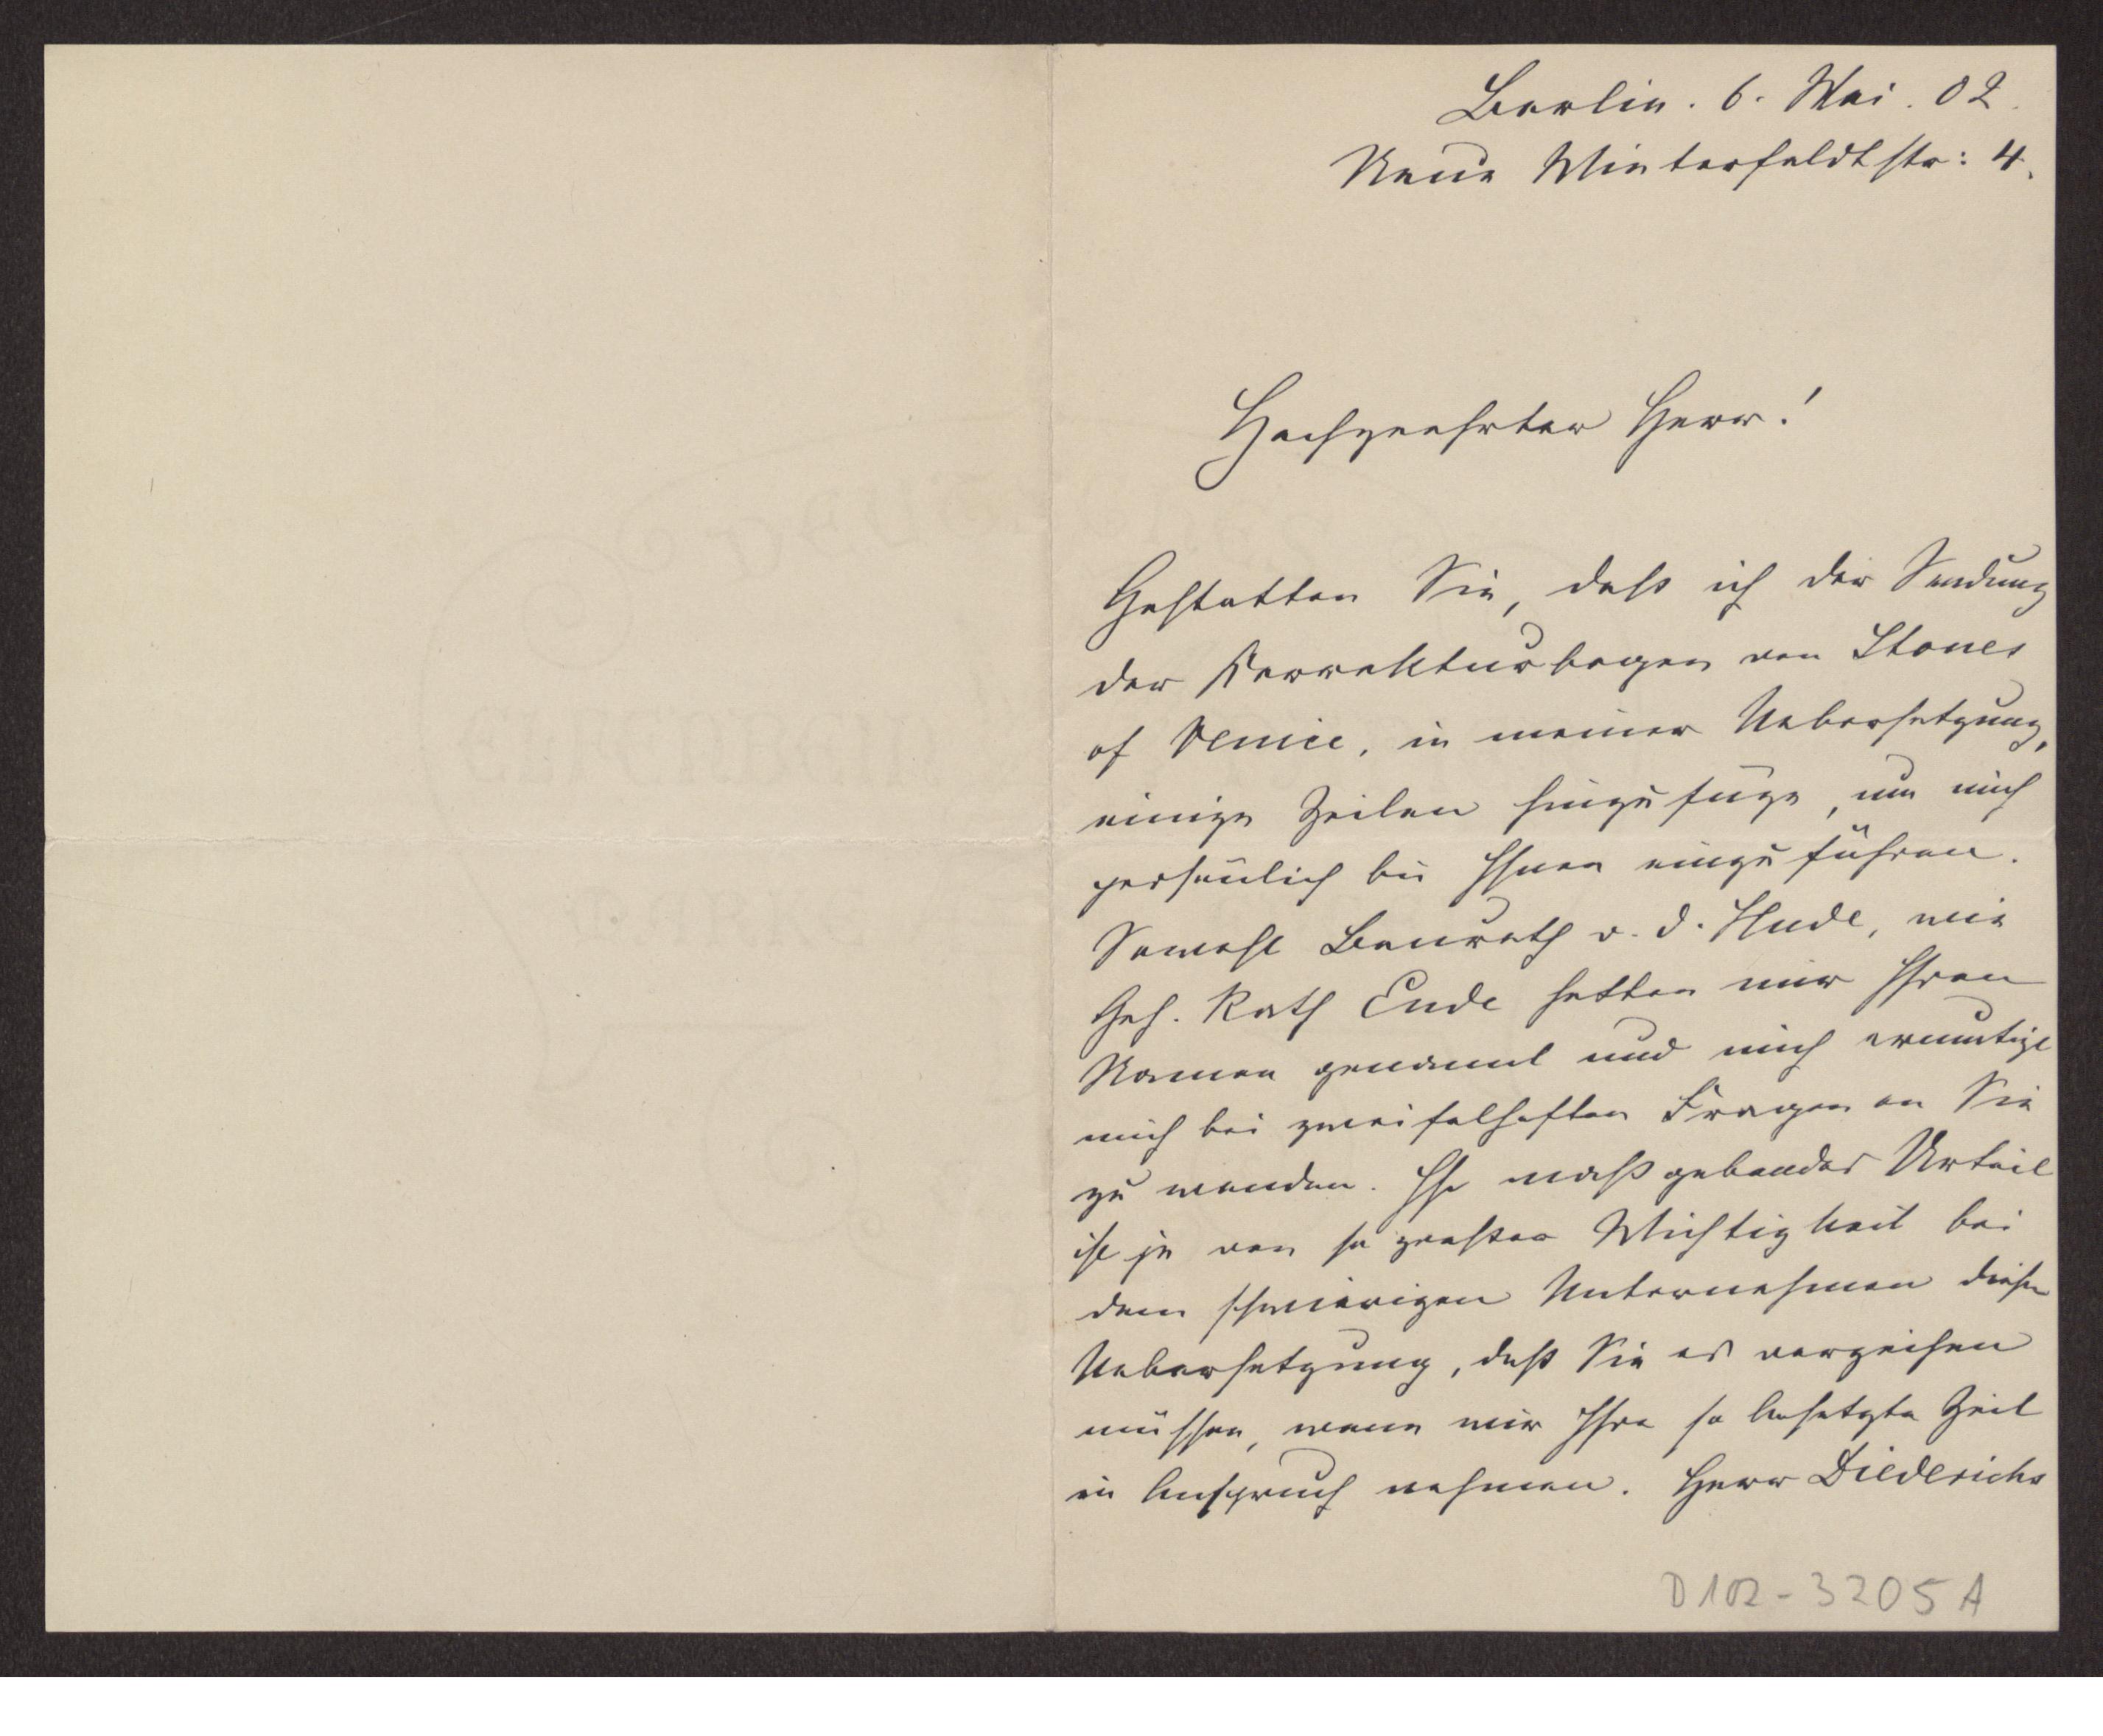 Berlin. 6. Mai. 02.
Neue Winterfeldtstr: 4.
Hochgeehrter Herr!
Gestatten Sie, daß ich der Sendung
der Korrekturbogen von Stones
of Venice, in meiner Uebersetzung,
einige Zeilen hinzufüge, um mich
persönlich bei Ihnen einzuführen.
Sowohl Baurath v. d. Hude, wie
Geh. Rath Ende hatten mir Ihren
Namen genannt und mich ermutigt
mich bei zweifelhaften Fragen an Sie
zu wenden. Ihr maßgebendes Urteil
ist ja von so großer Wichtigkeit bei
dem schwierigen Unternehmen dieser
Uebersetzung, daß Sie es verzeihen
müssen, wenn wir Ihre so besetzte Zeit
in Anspruch nehmen. Herr Diederichs
D 102-3205 A